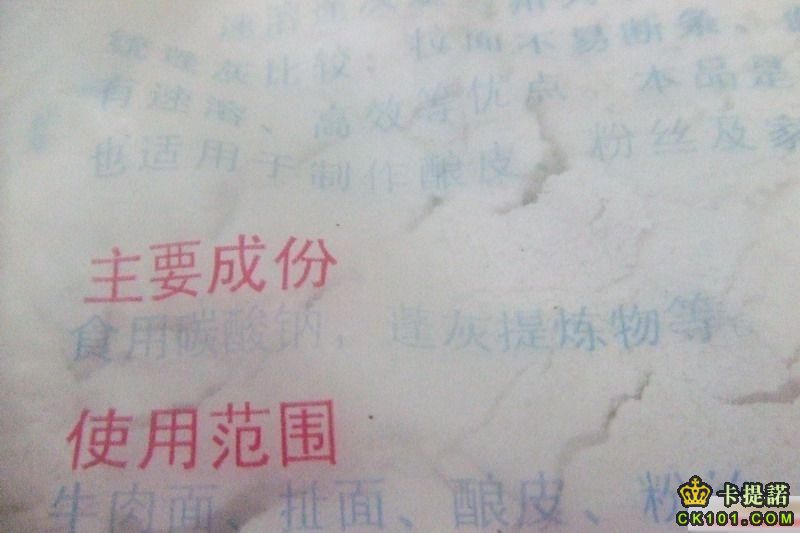 速溶速
统蓬灰比较：拉面不易断条、
有速溶、高效等优点、本品是
也适用于制作酿皮、粉丝及家
主要成份
食用碳酸钠，蓬灰提炼物等。
使用范围
牛肉面、扯面、酿皮、粉
卡提諾
CK101.COM